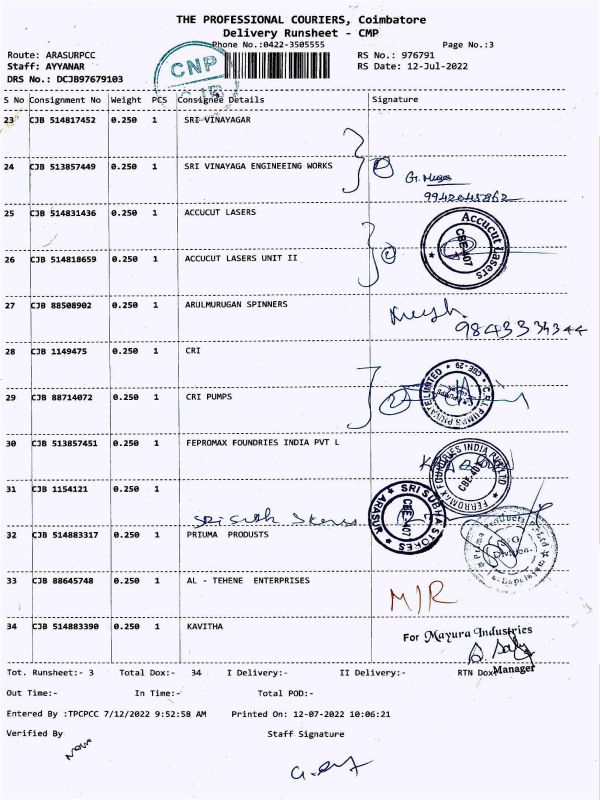 THE PROFESSIONAL COURIERS, Coimbatore
Delivery Runsheet - CMP
Phone No.:0422-3505555
Page No.:3
Route: ARASURPCC
RS No.: 976791
Staff: AYYANAR
CNP
RS Date: 12-Jul-2022
DRS No.: DCJB97679103
S No Consignment No Weight PCS Consignee Details Signature
23 CJB 514817452 0.250 1 SRI VINAYAGAR
24 CJB 513857449 0.250 1 SRI VINAYAGA ENGINEEING WORKS
25 CJB 514831436 0.250 1 ACCUCUT LASERS
Accucut Lasers
CBE-407
26 CJB 514818659 0.250 1 ACCUCUT LASERS UNIT II
27 CJB 88508902 0.250 1 ARULMURUGAN SPINNERS
28 CJB 1149475 0.250 1 CRI
29 CJB 88714072 0.250 1 CRI PUMPS
C.R.I. PUMPS PRIVATE LIMITED CBE-29
30 CJB 513857451 0.250 1 FEPROMAX FOUNDRIES INDIA PVT L
FERROMAX FOUNDRIES INDIA PVT LTD
CBE-407
31 CJB 1154121 0.250 1
SRI SUBHA STORES ARASUR
CBE-407
32 CJB 514883317 0.250 1 PRIUMA PRODUSTS
33 CJB 88645748 0.250 1 AL - TEHENE ENTERPRISES
M/R
34 CJB 514883390 0.250 1 KAVITHA
For Mayura Industries
Manager
Tot. Runsheet:- 3 Total Dox:- 34 I Delivery:- II Delivery:- RTN Dox:
Out Time:- In Time:- Total POD:-
Entered By :TPCPCC 7/12/2022 9:52:58 AM Printed On: 12-07-2022 10:06:21
Verified By Staff Signature